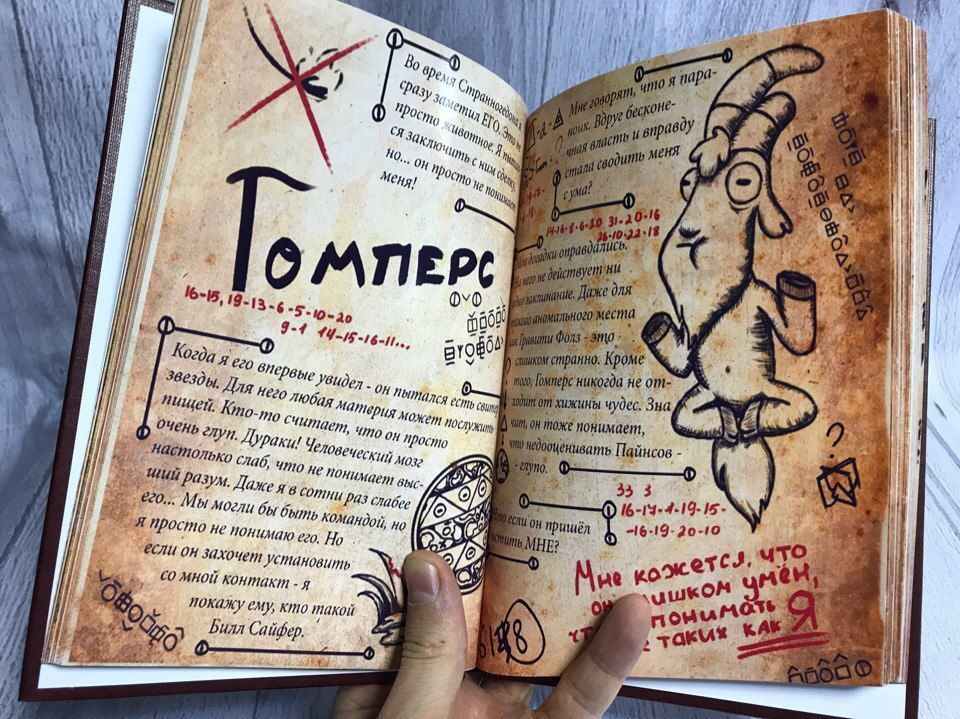 Во время Странногедона я
сразу заметил ЕГО. Это не
просто животное. Я пытал
ся заключить с ним сделку,
но... он просто не понимает
меня!
Гомперс
16-15, 19-13-6-5-10-20
9-1 14-15-16-11...
Когда я его впервые увидел - он пытался есть свитер
звезды. Для него любая материя может послужить
пищей. Кто-то считает, что он просто
очень глуп. Дураки! Человеческий мозг
настолько слаб, что не понимает выс-
ший разум. Даже я в сотни раз слабее
его... Мы могли бы быть командой, но
я просто не понимаю его. Но
если он захочет установить
со мной контакт - я
покажу ему, кто такой
Билл Сайфер.
Мне говорят, что я пара-
ноик. Вдруг бесконе-
чная власть и вправду
стала сводить меня
с ума?
14-16-8-6-20 31-20-16
26-10-22-18
догадки оправдались.
На него не действует ни
одно заклинание. Даже для
такого аномального места
как Гравити Фолз - это
слишком странно. Кроме
того, Гомперс никогда не от-
ходит от хижины чудес. Зна
чит, он тоже понимает,
что недооценивать Пайнсов -
- глупо.
33 3
16-17-1-19-15-
-16-19-20-10
если он пришёл
мстить МНЕ?
Мне кажется, что
он слишком умён,
понимать
таких как Я
?